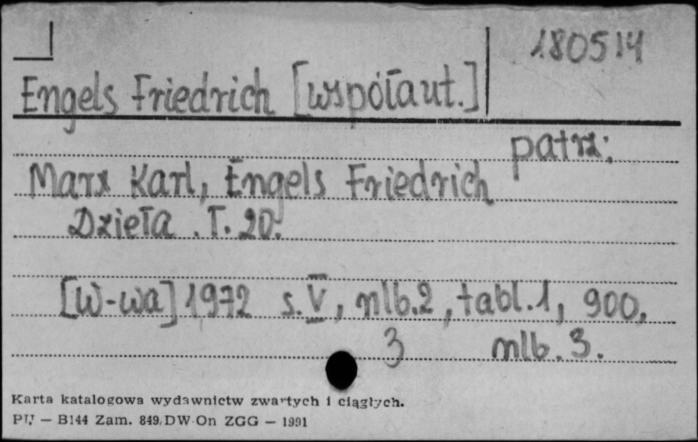 180514
Engels Friedrich [współaut.]
patrz:
Marx Karl, Engels Friedrich
Dzieła . T. 20.
[W-wa] 1972 s. V, nlb. 2, tabl. 1, 900,
3 nlb. 3.
Karta katalogowa wydawnictw zwartych i ciągłych.
PU — B144 Zam. 849/DW-On ZGG — 1991